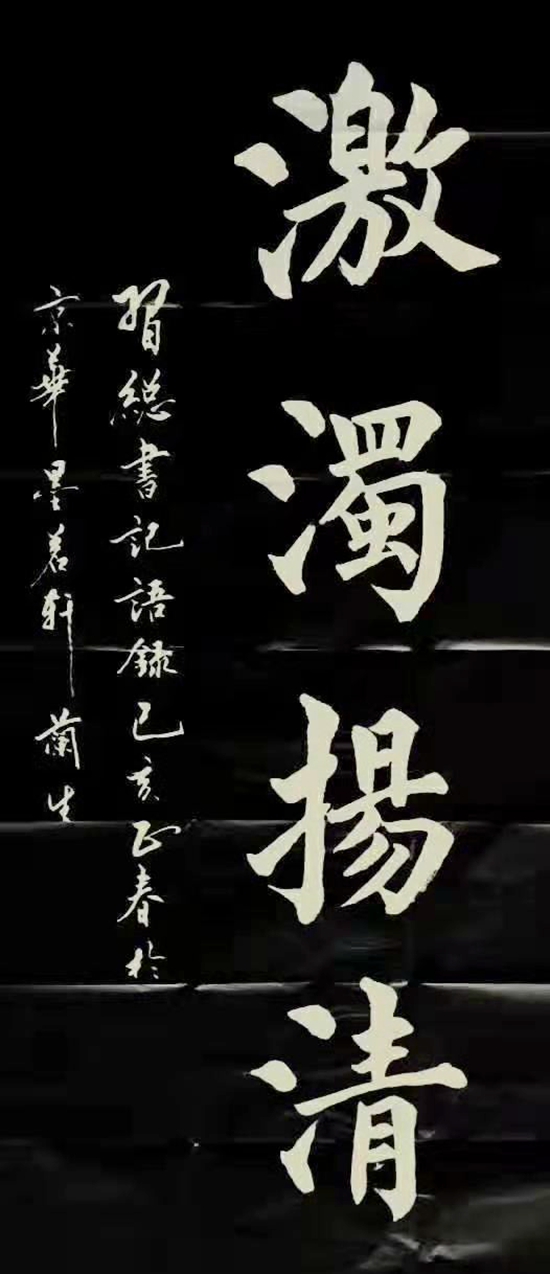 激濁揚清
習総書記語録己亥正春於
京華墨茗軒蘭生